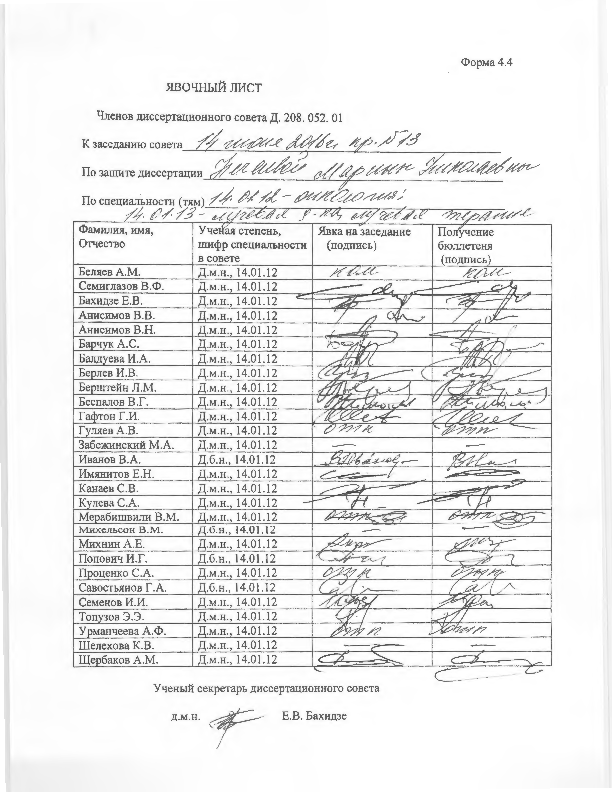 Форма 4.4
ЯВОЧНЫЙ ЛИСТ
Членов диссертационного совета Д. 208. 052. 01
К заседанию совета 14 июня 2016г. пр. №13
По защите диссертации Марины Николаевны
По специальности (тям) 14.01.12 - онкология;
14.01.13 - лучевая д-ка, лучевая терапия
Фамилия, имя, Отчество Ученая степень, шифр специальности в совете Явка на заседание (подпись) Получение бюллетеня (подпись)
Беляев А.М. Д.м.н., 14.01.12 ком ком
Семиглазов В.Ф. Д.м.н., 14.01.12
Бахидзе Е.В. Д.м.н., 14.01.12
Анисимов В.В. Д.м.н., 14.01.12
Анисимов В.Н. Д.м.н., 14.01.12
Барчук А.С. Д.м.н., 14.01.12
Балдуева И.А. Д.м.н., 14.01.12
Берлев И.В. Д.м.н., 14.01.12
Берштейн Л.М. Д.м.н., 14.01.12
Беспалов В.Г. Д.м.н., 14.01.12
Гафтон Г.И. Д.м.н., 14.01.12
Гуляев А.В. Д.м.н., 14.01.12 отп отп
Забежинский М.А. Д.м.н., 14.01.12 – –
Иванов В.А. Д.б.н., 14.01.12
Имянитов Е.Н. Д.м.н., 14.01.12
Канаев С.В. Д.м.н., 14.01.12
Кулева С.А. Д.м.н., 14.01.12
Мерабишвили В.М. Д.м.н., 14.01.12
Михельсон В.М. Д.б.н., 14.01.12 – –
Михнин А.Е. Д.м.н., 14.01.12
Попович И.Г. Д.б.н., 14.01.12
Проценко С.А. Д.м.н., 14.01.12 отп отп
Савостьянов Г.А. Д.б.н., 14.01.12
Семенов И.И. Д.м.н., 14.01.12
Топузов Э.Э. Д.м.н., 14.01.12
Урманчеева А.Ф. Д.м.н., 14.01.12 отп
Шелехова К.В. Д.м.н., 14.01.12 – –
Щербаков А.М. Д.м.н., 14.01.12
Ученый секретарь диссертационного совета
д.м.н. Е.В. Бахидзе